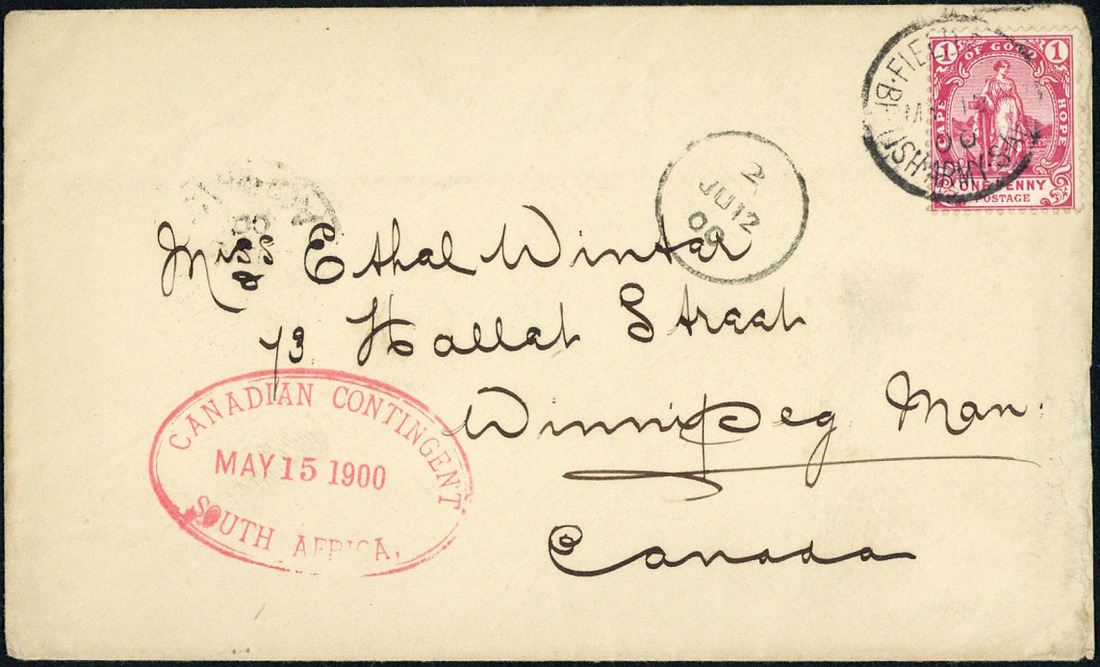 1 OF GOOD 1
CAPE HOPE
ONE PENNY
POSTAGE
FIELD
BRITISH ARMY S.A.
00
2
JU 12
00
00
Miss Ethel Winter
73 Hallet Street
Winnipeg Man.
Canada
CANADIAN CONTINGENT
MAY 15 1900
SOUTH AFRICA.